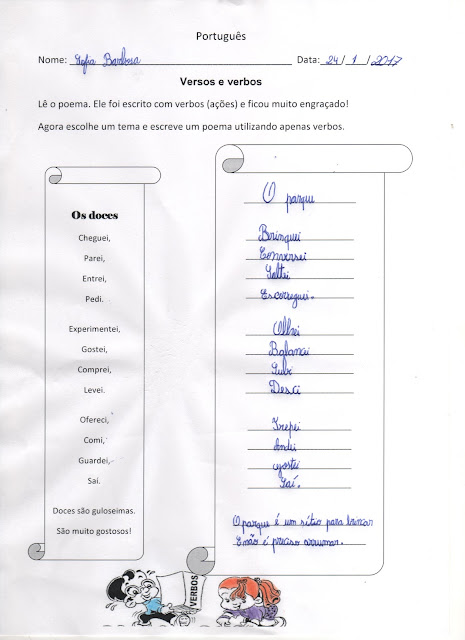 Português
Nome: Sofia Barbosa Data: 24/1/2017
Versos e verbos
Lê o poema. Ele foi escrito com verbos (ações) e ficou muito engraçado!
Agora escolhe um tema e escreve um poema utilizando apenas verbos.
Os doces
Cheguei,
Parei,
Entrei,
Pedi.
Experimentei,
Gostei,
Comprei,
Levei.
Ofereci,
Comi,
Guardei,
Saí.
Doces são guloseimas.
São muito gostosos!
O parque
Brinquei
Conversei
Saltei
Escorreguei.
Olhei
Balancei
Subi
Desci
Trepei
Andei
gostei
Saí.
O parque é um sítio para brincar
E não é preciso arrumar.
VERBOS